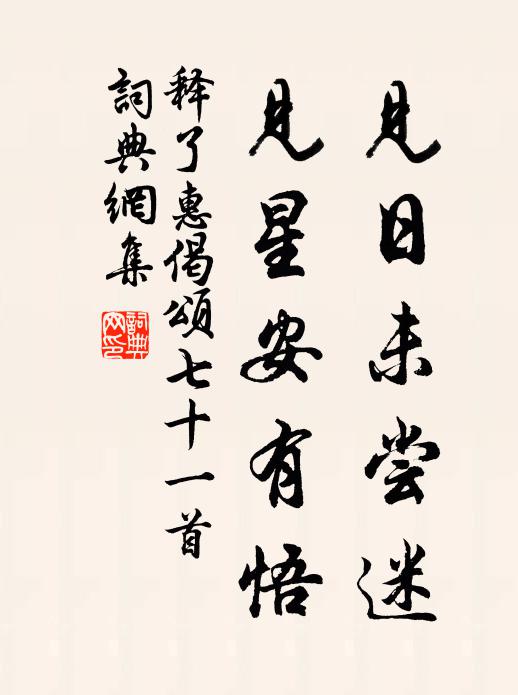 見日未尝迷
見星安有悟
释了惠偈頌七十一首
詞典網集
詞典網印